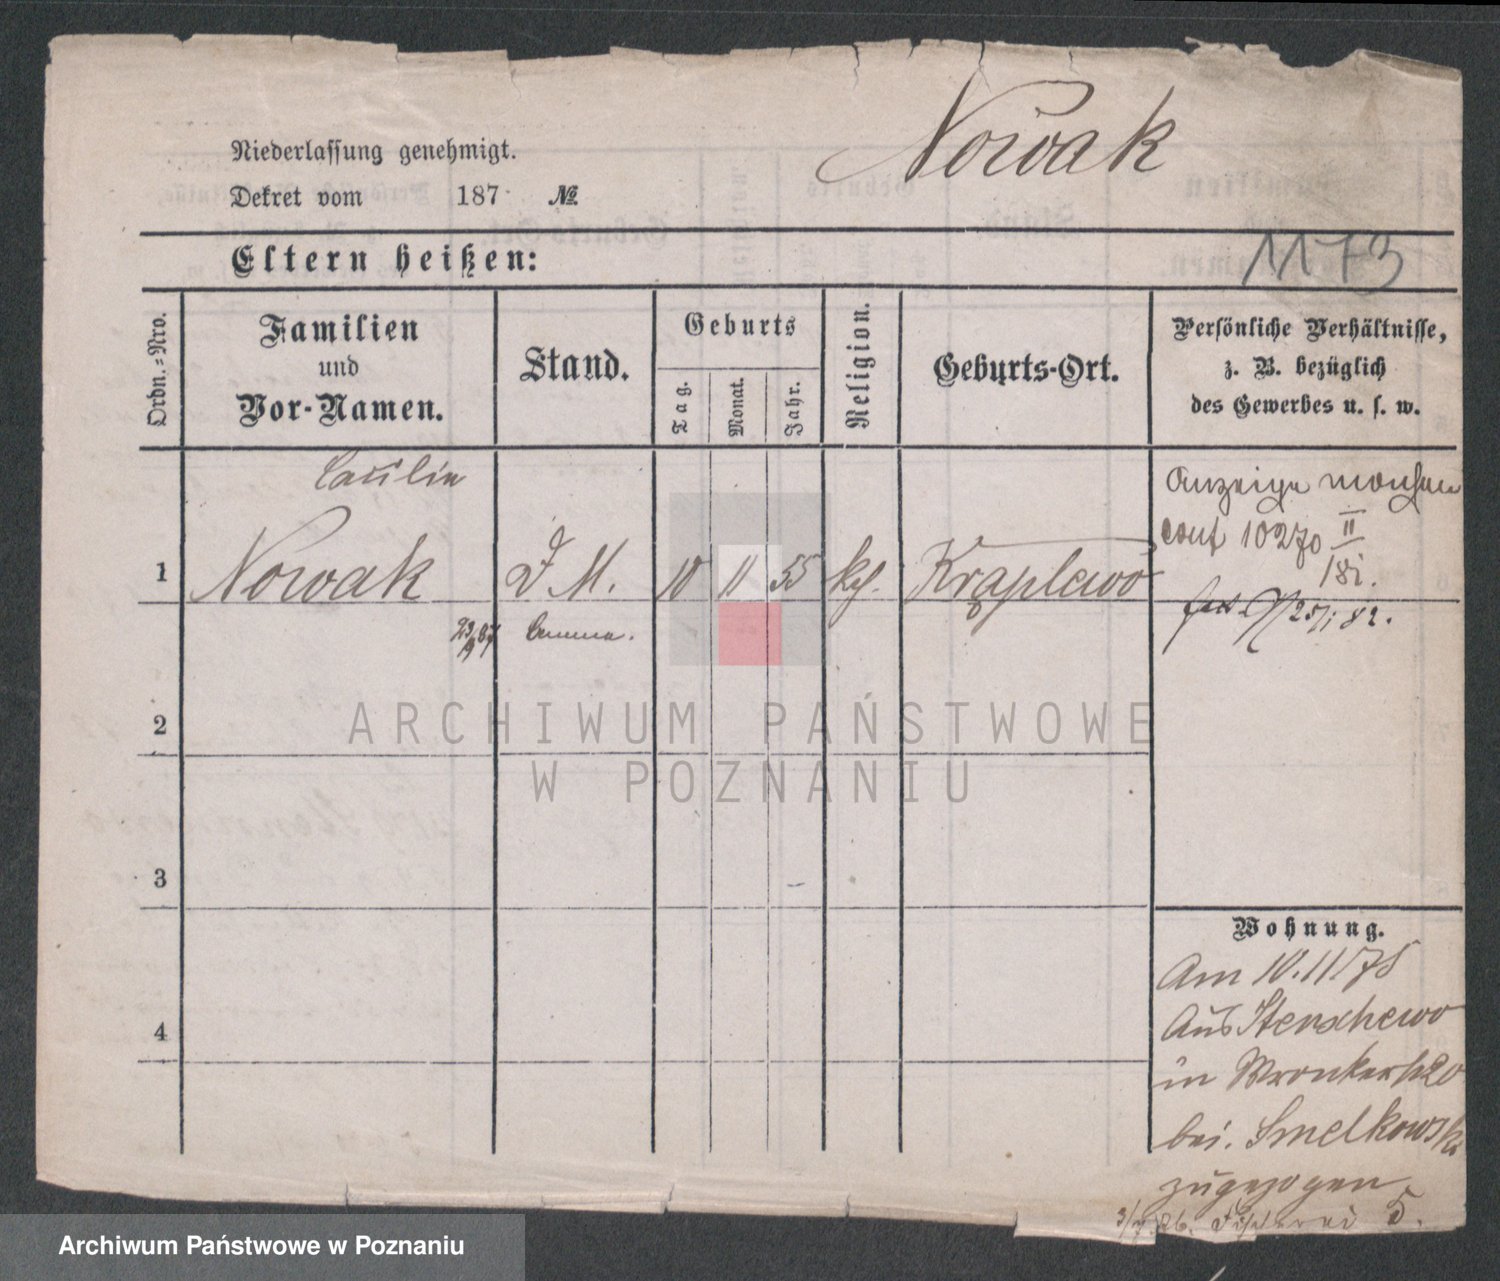 Nowak
Niederlassung genehmigt.
Dekret vom 187 №
Eltern heißen:
1173
Ordn.-Nro.
Familien
und
Vor-Namen.
Stand.
Geburts
Tag.
Monat.
Jahr.
Religion.
Geburts-Ort.
Persönliche Verhältnisse,
z. B. bezüglich
des Gewerbes u. s. w.
1
Nowak
D M. 10 11 55 kh. Krąplewo
Anzeige
10270 II
181.
25/1 82.
2
3
4
Wohnung.
Am 10.11 78
Aus Stenschewo
in Wronkerstr 20
bei Smelkowski
zugezogen
5.
ARCHIWUM PAŃSTWOWE
W POZNANIU
Archiwum Państwowe w Poznaniu